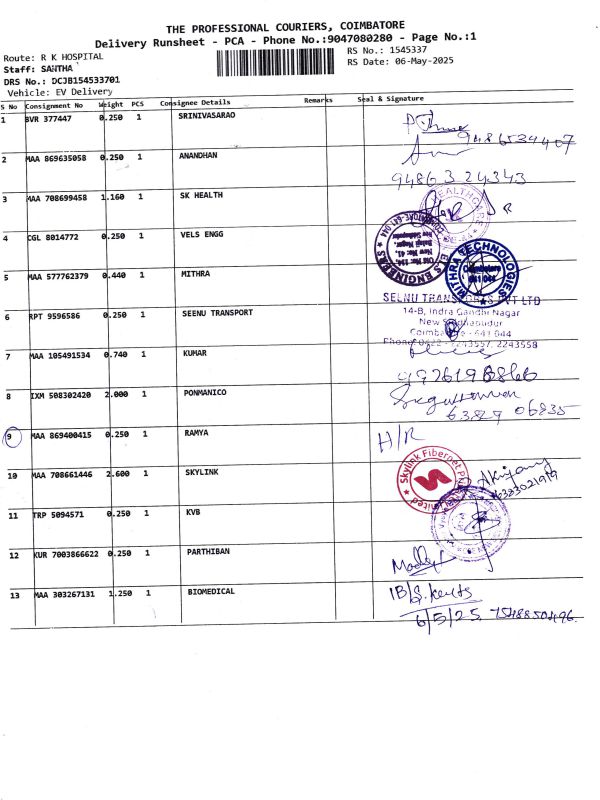 THE PROFESSIONAL COURIERS, COIMBATORE
Delivery Runsheet - PCA - Phone No.:9047080280 - Page No.:1
Route: R K HOSPITAL
RS No.: 1545337
Staff: SANTHA
RS Date: 06-May-2025
DRS No.: DCJB154533701
Vehicle: EV Delivery
S No Consignment No Weight PCS Consignee Details Remarks Seal & Signature
1 BVR 377447 0.250 1 SRINIVASARAO
9486539407
2 MAA 869635058 0.250 1 ANANDHAN
94863 24343
3 MAA 708699458 1.160 1 SK HEALTH
HEALTHCARE
4 CGL 8014772 0.250 1 VELS ENGG
ELS ENGINEERS
COIMBATORE-641 044
5 MAA 577762379 0.440 1 MITHRA
MITHRA TECHNOLOGIES
Coimbatore
641 044
6 RPT 9596586 0.250 1 SEENU TRANSPORT
SELNU TRANSPORTS PVT LTD
14-B, Indra Gandhi Nagar
New Sidhapudur
Coimbatore - 641 044
Phone: 0422 - 2243557, 2243558
7 MAA 105491534 0.740 1 KUMAR
8 IXM 508302420 2.000 1 PONMANICO
63829 06835
9 MAA 869400415 0.250 1 RAMYA H/R
10 MAA 708661446 2.600 1 SKYLINK
Skylink Fibernet
6383021919
11 TRP 5094571 0.250 1 KVB
12 KUR 7003866622 0.250 1 PARTHIBAN
13 MAA 303267131 1.250 1 BIOMEDICAL
6/5/25. 7548850496.